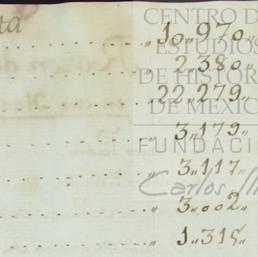 ta „10„970„
„2„380„
„22„279„
„3„179„
„3„117„
„3„002„
„1„315„
CENTRO D
ESTUDIOS
DE HISTOR
DE MÉXIC
FUNDACI
Carlos